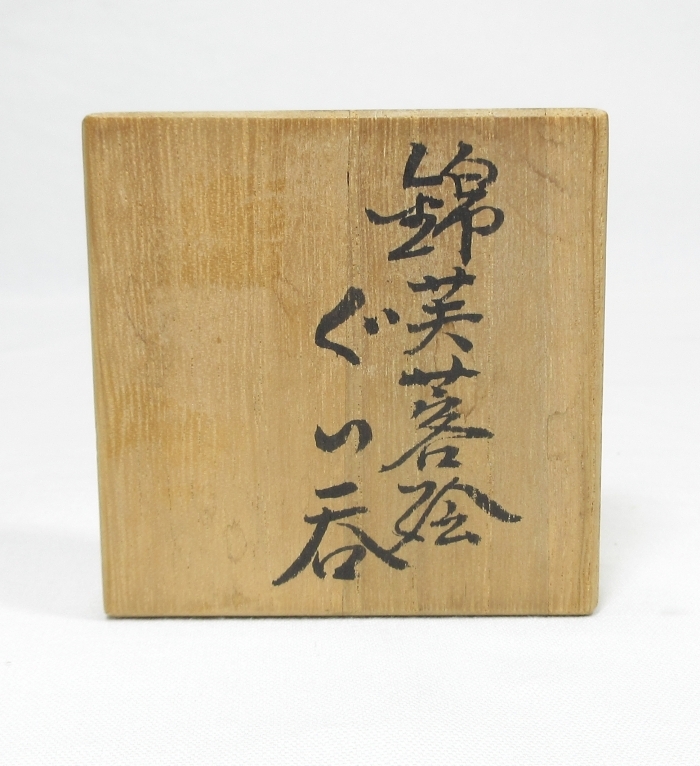 錦芙蓉絵
ぐい呑